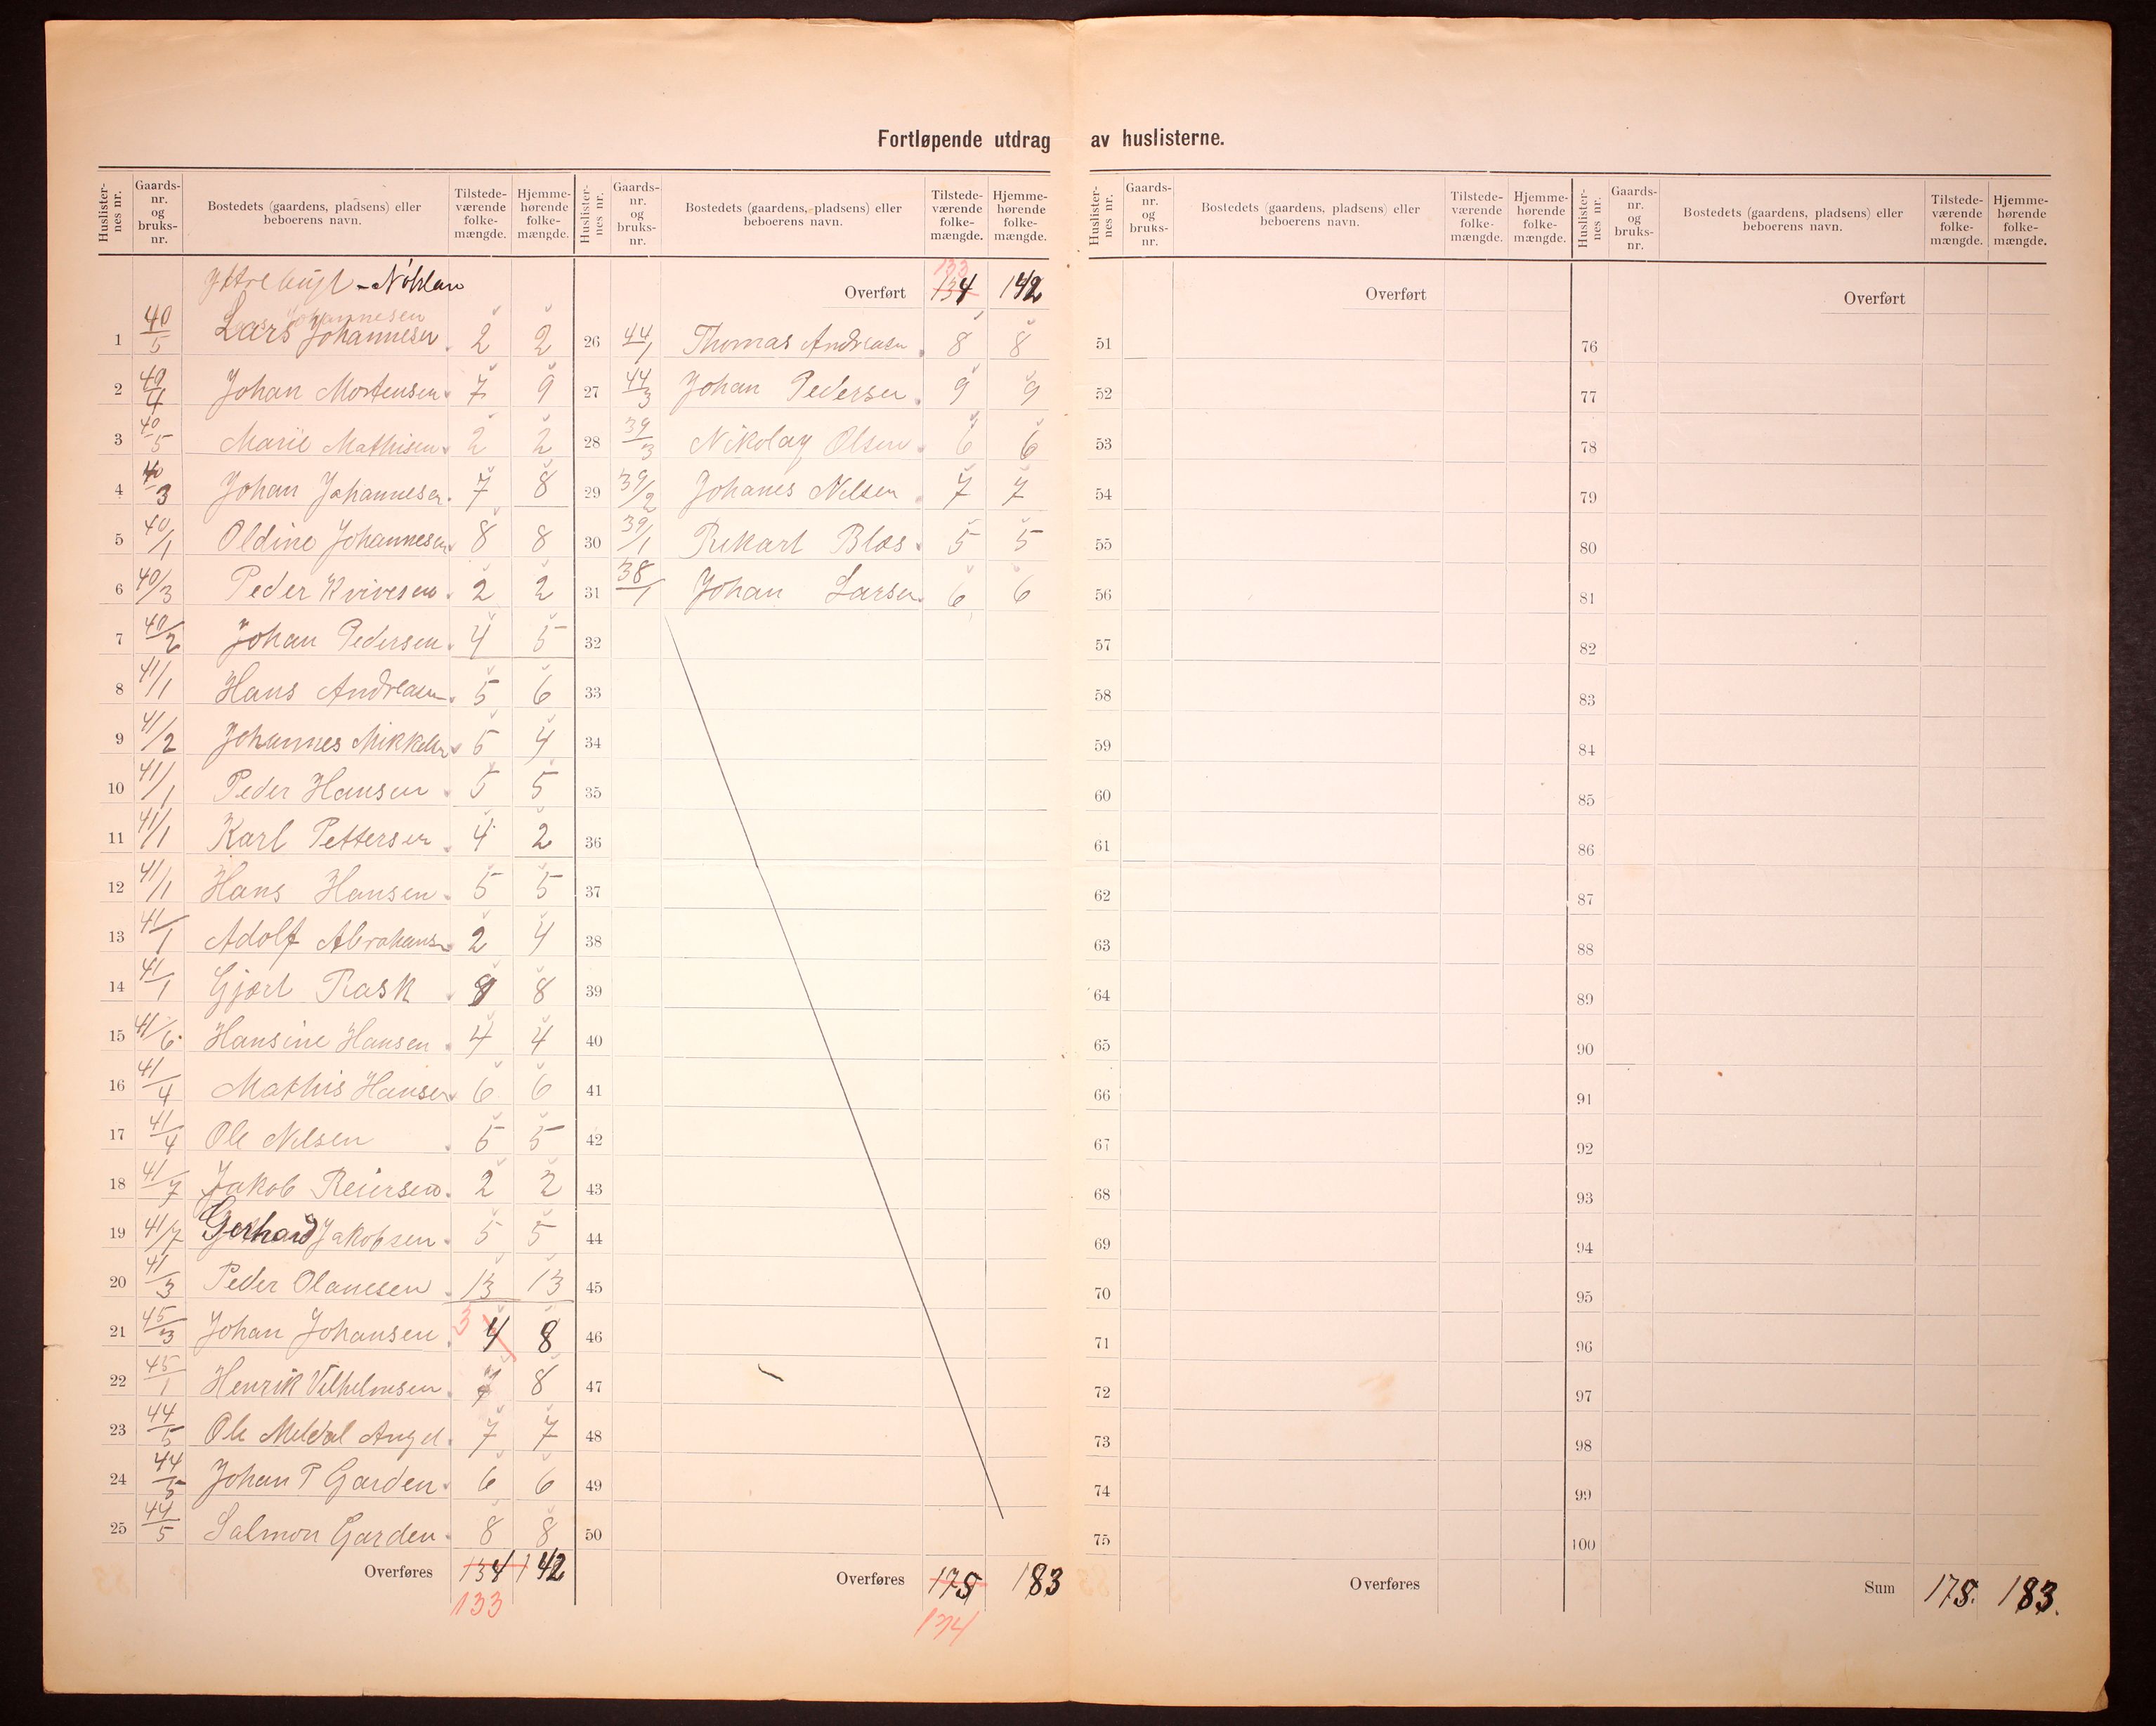 Fortløpende utdrag av huslisterne.
Huslisternes nr. | Gaards-nr. og bruks-nr. | Bostedets (gaardens, pladsens) eller beboerens navn. | Tilstedeværende folkemængde. | Hjemmehørende folkemængde.
Johannesen
1 | 40/5 | Lars Johannesen | 2 | 2
2 | 40/4 | Johan Mortensen | 7 | 9
3 | 40/5 | Marie Mathisen | 2 | 2
4 | 40/3 | Johan Johannesen | 7 | 8
5 | 40/1 | Oldine Johannesen | 8 | 8
6 | 40/3 | Peder | 2 | 2
7 | 40/2 | Johan Pedersen | 4 | 5
8 | 41/1 | Hans Andreasen | 5 | 6
9 | 41/2 | Johannes Mikkelsen | 5 | 4
10 | 41/1 | Peder Hansen | 5 | 5
11 | 41/1 | Karl Pettersen | 4 | 2
12 | 41/1 | Hans Hansen | 5 | 5
13 | 41/1 | Adolf Abrahams | 2 | 4
14 | 41/1 | Rask | 8
15 | 41/6 | Hansine Hansen | 4 | 4
16 | 41/4 | Mathis Hansen | 6 | 6
17 | 41/4 | Ole Nilsen | 5 | 5
18 | 41/7 | Jakob Reiersen | 2 | 2
19 | 41/7 | Gerhard Jakobsen | 5 | 5
20 | 41/3 | Peder Olanesen | 13 | 13
21 | 45/3 | Johan Johansen | 3 4 | 8
22 | 45/1 | Henrik Vilhelmsen | 8
23 | 44/5 | Ole Meldal Angel | 7 | 7
24 | 44/5 | Johan P Garden | 6 | 6
25 | 44/5 | Salmon Garden | 8 | 8
Overføres | 134 | 142
133
Huslisternes nr. | Gaards-nr. og bruks-nr. | Bostedets (gaardens, pladsens) eller beboerens navn. | Tilstedeværende folkemængde. | Hjemmehørende folkemængde.
133
Overført | 134 | 142
26 | 44/1 | Thomas Andreasen | 8 | 8
27 | 44/3 | Johan Pedersen | 9 | 9
28 | 39/3 | Nikolay Olsen | 6 | 6
29 | 39/2 | Johanes Nilsen | 7 | 7
30 | 39/1 | Rikart Blos | 5 | 5
31 | 38/1 | Johan Larsen | 6 | 6
32
33
34
35
36
37
38
39
40
41
42
43
44
45
46
47
48
49
50
Overføres | 175 | 183
174
Huslisternes nr. | Gaards-nr. og bruks-nr. | Bostedets (gaardens, pladsens) eller beboerens navn. | Tilstedeværende folkemængde. | Hjemmehørende folkemængde.
Overført
51
52
53
54
55
56
57
58
59
60
61
62
63
64
65
66
67
68
69
70
71
72
73
74
75
Overføres
Huslisternes nr. | Gaards-nr. og bruks-nr. | Bostedets (gaardens, pladsens) eller beboerens navn. | Tilstedeværende folkemængde. | Hjemmehørende folkemængde.
Overført
76
77
78
79
80
81
82
83
84
85
86
87
88
89
90
91
92
93
94
95
96
97
98
99
100
Sum | 175. | 183.